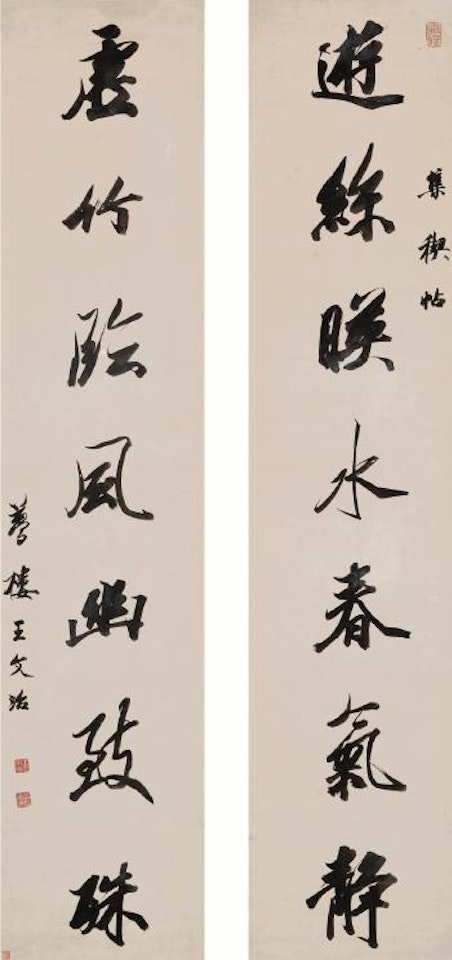 集禊帖
遊絲暎水春氣靜
虛竹臨風幽致殊
夢樓王文治